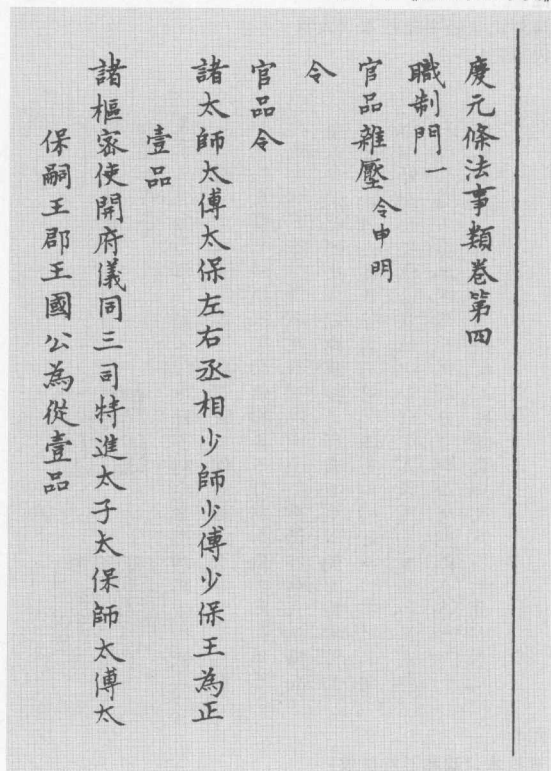 慶元條法事類卷第四
職制門一
官品雜壓 令申明
令
官品令
諸太師太傅太保左右丞相少師少傅少保王為正
壹品
諸樞密使開府儀同三司特進太子太保師太傅太
保嗣王郡王國公為從壹品